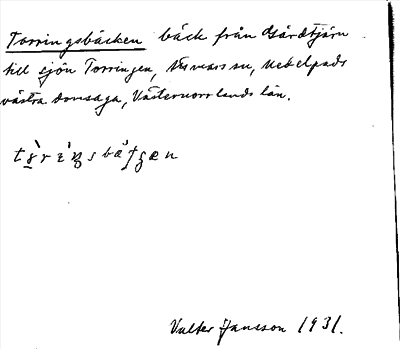 Torringsbäcken bäck från Gärdtjärn
till sjön Torringen, Medelpads
västra domsaga, Västernorrlands län.
Valter Jansson 1931.